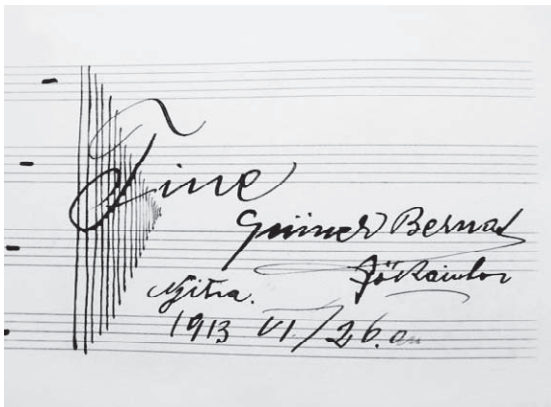 Fine
Grüner Bernat
Főkántor
Nyitra.
1913 VI/26.